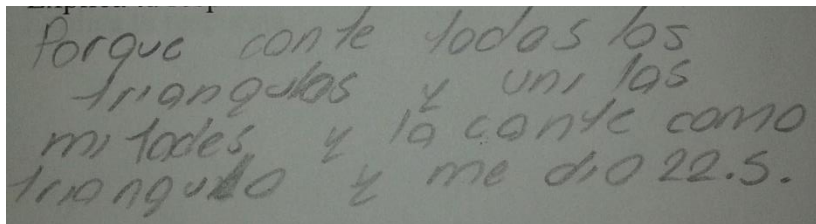 Porque conte todos los
triangulos y uni las
mitades y la conte como
triangulo y me dio 22.5.